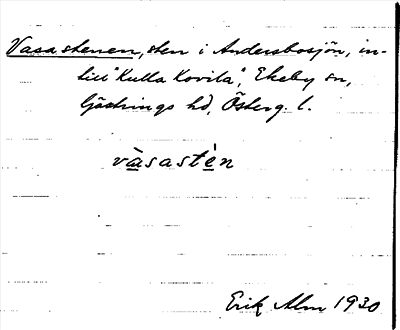 Vasastenen, sten i Andersbosjön, in-
till "Kulla Kovila", Ekeby sn,
Göstrings hd, Österg. l.
vàsastèn
Erik Alm 1930